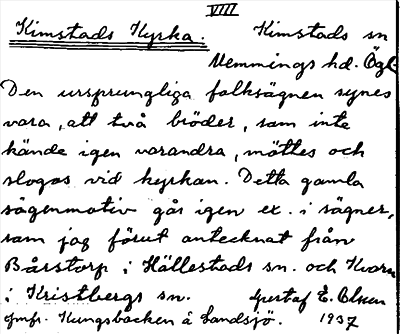 VIII
Kimstads Kyrka. Kimstads sn
Memmings hd. Ögl.
Den ursprungliga folksägnen synes
vara, att två bröder, som inte
kände igen varandra, möttes och
slogos vid kyrkan. Detta gamla
sägenmotiv går igen ex. i sägner,
som jag förut antecknat från
Bårstorp i Hällestads sn. och Kvarn
i Kristbergs sn. Gustaf E. Olsson
jmf. Kungsbacken å Landsjö. 1937